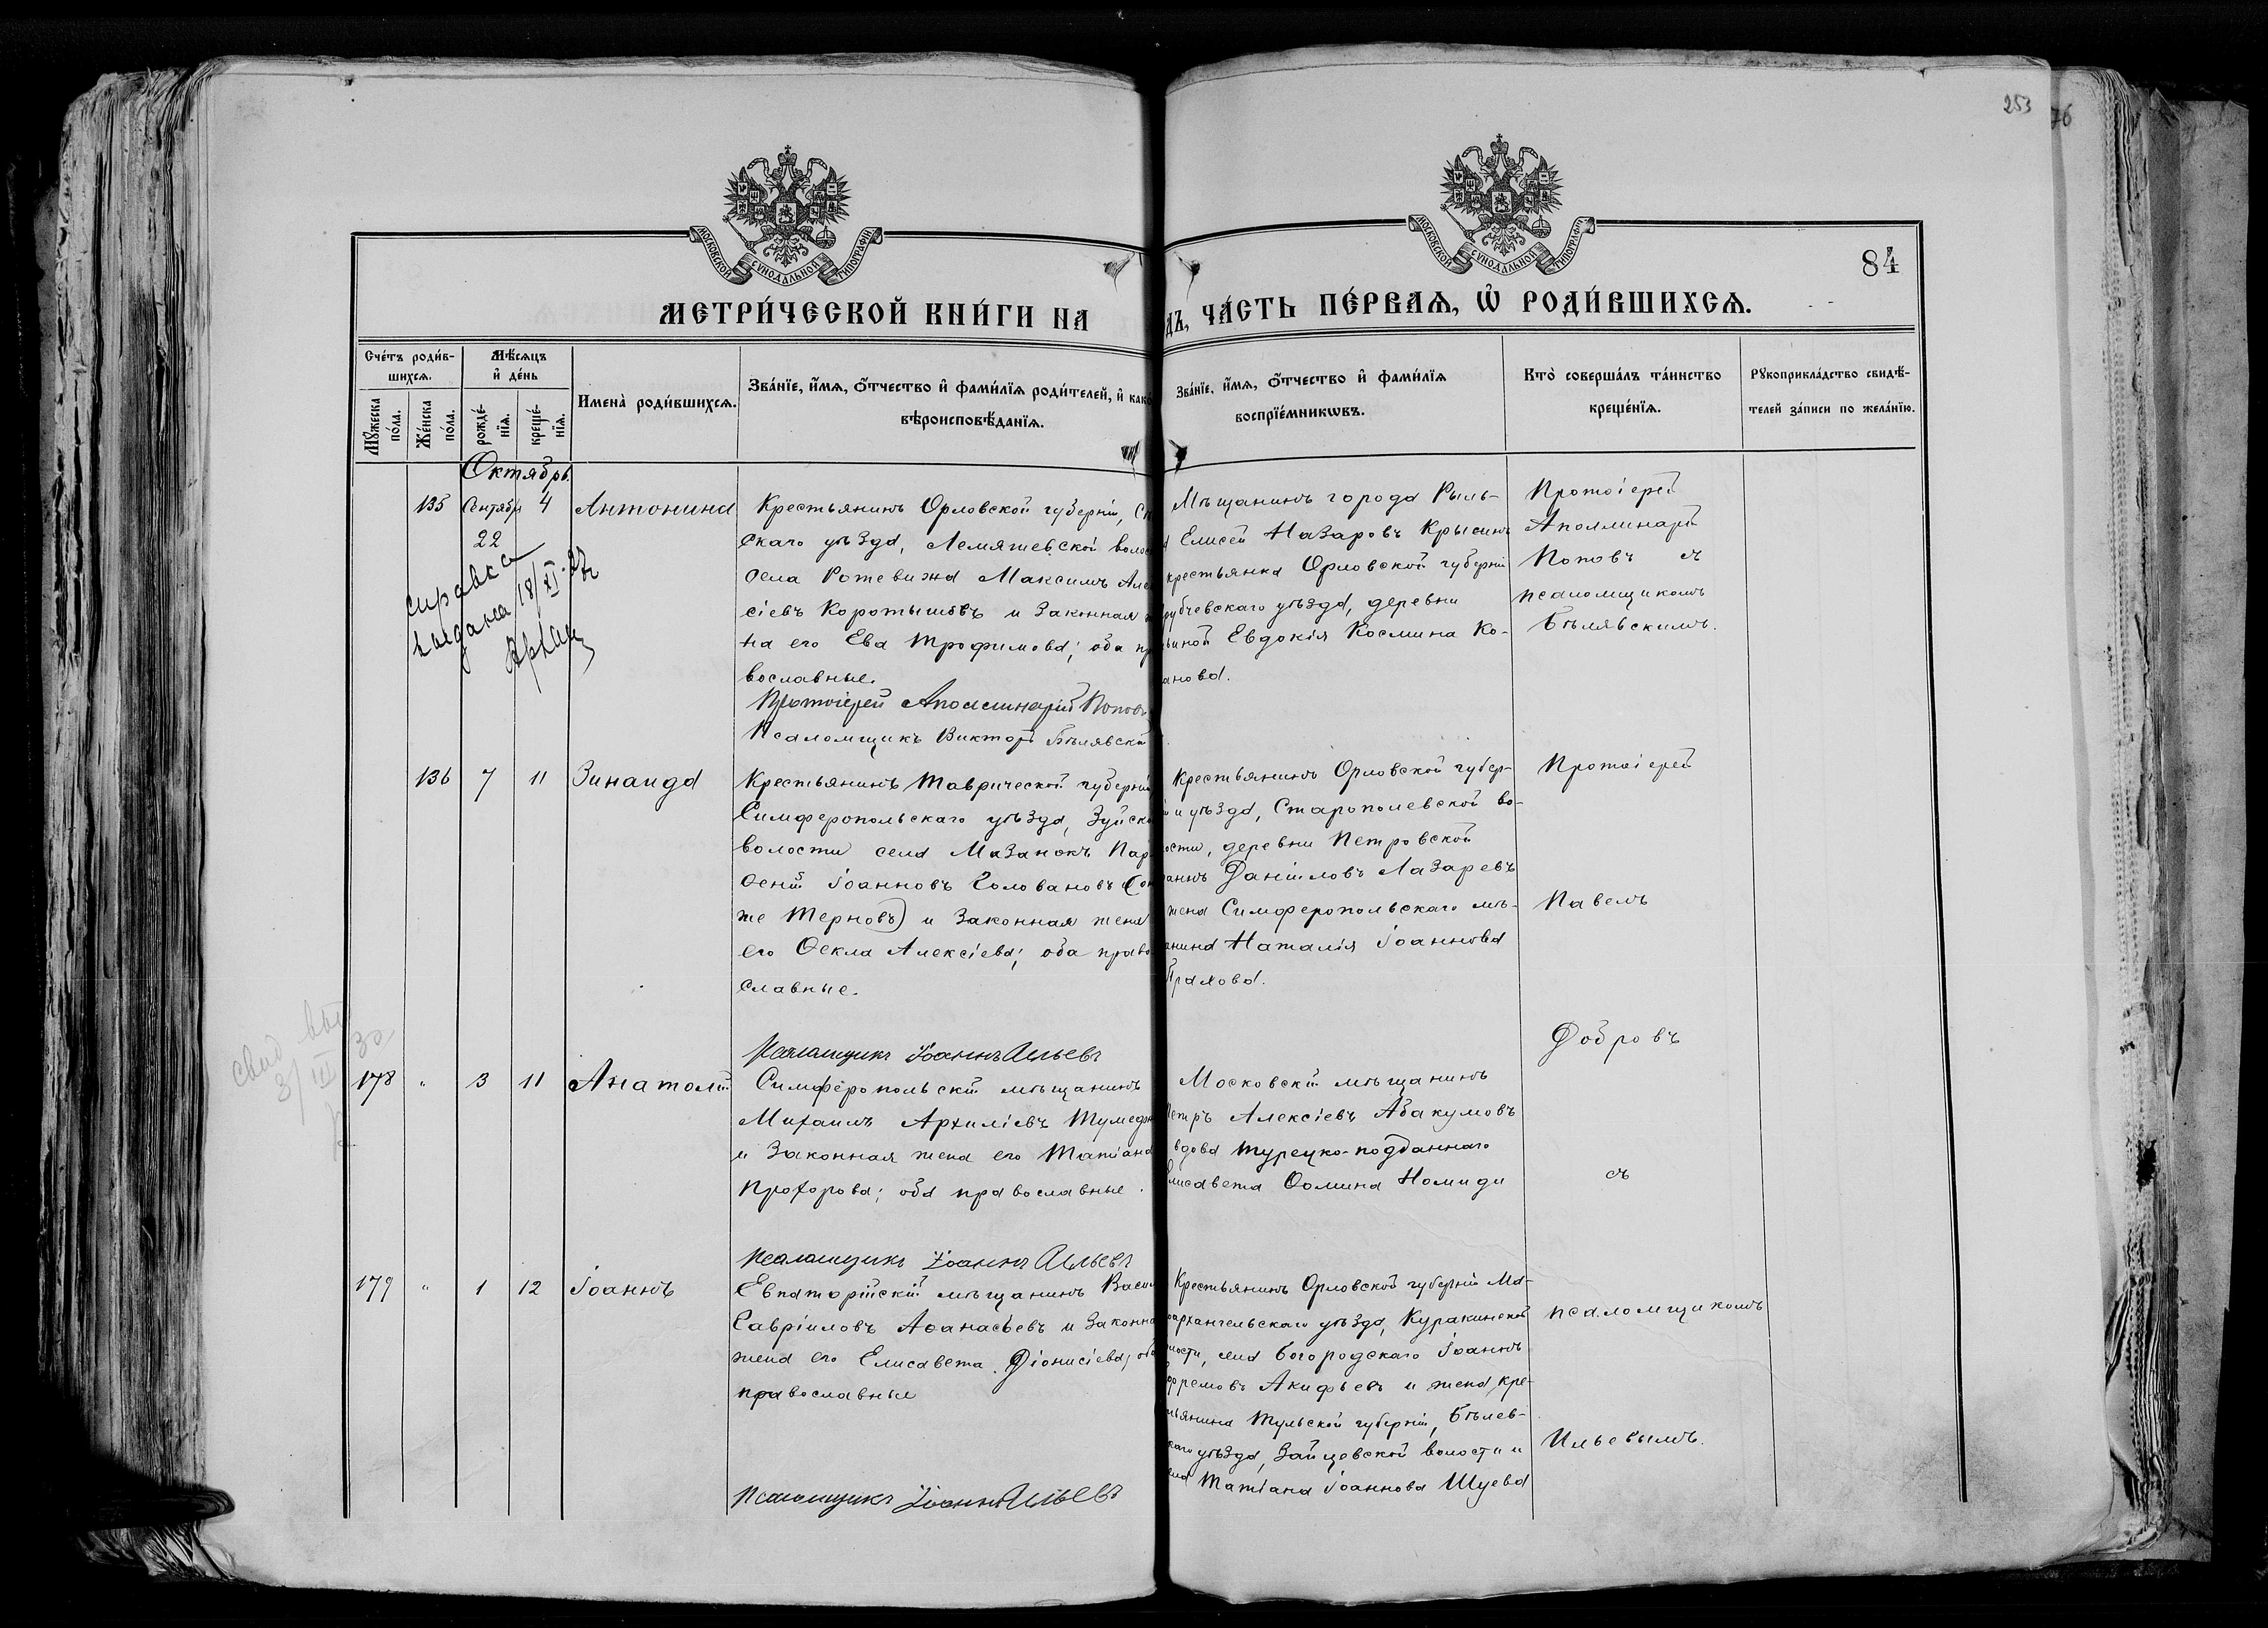 253
76
МОСКОВСКОЙ СѴНОДАЛЬНОЙ ТИПОГРАФІИ
МОСКОВСКОЙ СѴНОДАЛЬНОЙ ТИПОГРАФІИ
84
МЕТРИ́ЧЕСКОЙ КНИ́ГИ НА
ДЪ, ЧА́СТЬ ПЕ́РВАѦ, Ѡ҆ РОДИ́ВШИХСѦ.
Сче́тъ роди́в-
шихсѧ.
Мѣ́сѧцъ
и҆ де́нь
Имена̀ роди́вшихсѧ.
Зва́нїе, и҆́мѧ, ѻ҆́тчество и҆ фами́лїѧ роди́телей, и҆ како
вѣроисповѣ́данїѧ.
Зва́нїе, и҆́мѧ, ѻ҆́тчество и҆ фами́лїѧ
воспрїе́мникѡвъ.
Кто̀ соверша́лъ та́инство
креще́нїѧ.
Рꙋкоприкла́дство свидѣ́-
телей за́писи по жела́нїю.
Мꙋ́жеска
по́ла.
Же́нска
по́ла.
рожде́-
нїѧ.
креще́-
нїѧ.
Октябрь.
135 Сентябр 4 Антонина
22
справка
выдана 18/XI
Крестьянинъ Орловской губерніи, Сѣ
скаго уѣзда, Лемяшевской волос
села Ротевижа Максимъ Але
сіевъ Коротышовъ и законная
на его Ева Трофимова; оба пр
вославные.
Протоіерей Аполлинарій Поповъ
Псаломщикъ Викторъ Бѣлявскій
Мѣщанинъ города Рыль-
Елисей Назаровъ Крысинъ
крестьянка Орловской губерніи
рубчевскаго уѣзда, деревни
ьиной Евдокія Космина Ко-
анова.
Протоіерей
Аполлинарій
Поповъ съ
псаломщикомъ
Бѣлявскимъ.
136 7 11 Зинаида
Крестьянинъ Таврической губерніи
Симферопольскаго уѣзда, Зуйско
волости села Мазанокъ Пар
ѳеній Іоанновъ Головановъ (он
же Терновъ) и законная жена
его Ѳекла Алексіева; оба право
славные.
Псаломщикъ Іоаннъ Ильевъ
Крестьянинъ Орловской губер-
и уѣзда, Старополевской во-
ости, деревни Петровской
аннъ Даніиловъ Лазаревъ
жена Симферопольскаго мѣ-
анина Наталія Іоаннова
Пралова.
Протоіерей
Павелъ
Добровъ
съ
псаломщикомъ
Ильевымъ.
свид вы
3/III 30
178 " 3 11 Анатолій
Симферопольскій мѣщанинъ
Михаилъ Архиліевъ Тумедж
и законная жена его Татіана
Прохорова; оба православные.
Псаломщикъ Іоаннъ Ильевъ
Московскій мѣщанинъ
Петръ Алексіевъ Абакумовъ
вдова турецко-подданнаго
Елисавета Ѳомина Номиди
179 " 1 12 Іоаннъ
Евпаторійскій мѣщанинъ Васи
Гавріиловъ Аѳанасьевъ и законна
жена его Елисавета Діонисіева; оба
православные
Псаломщикъ Іоаннъ Ильевъ
Крестьянинъ Орловской губерніи Ма-
оархангельскаго уѣзда, Куракинской
лости, села Богородскаго Іоаннъ
фремовъ Акифьевъ и жена кре-
тьянина Тульской губерніи, Бѣлев-
каго уѣзда, Зайцевской волости и
ела Татіана Іоаннова Шуева